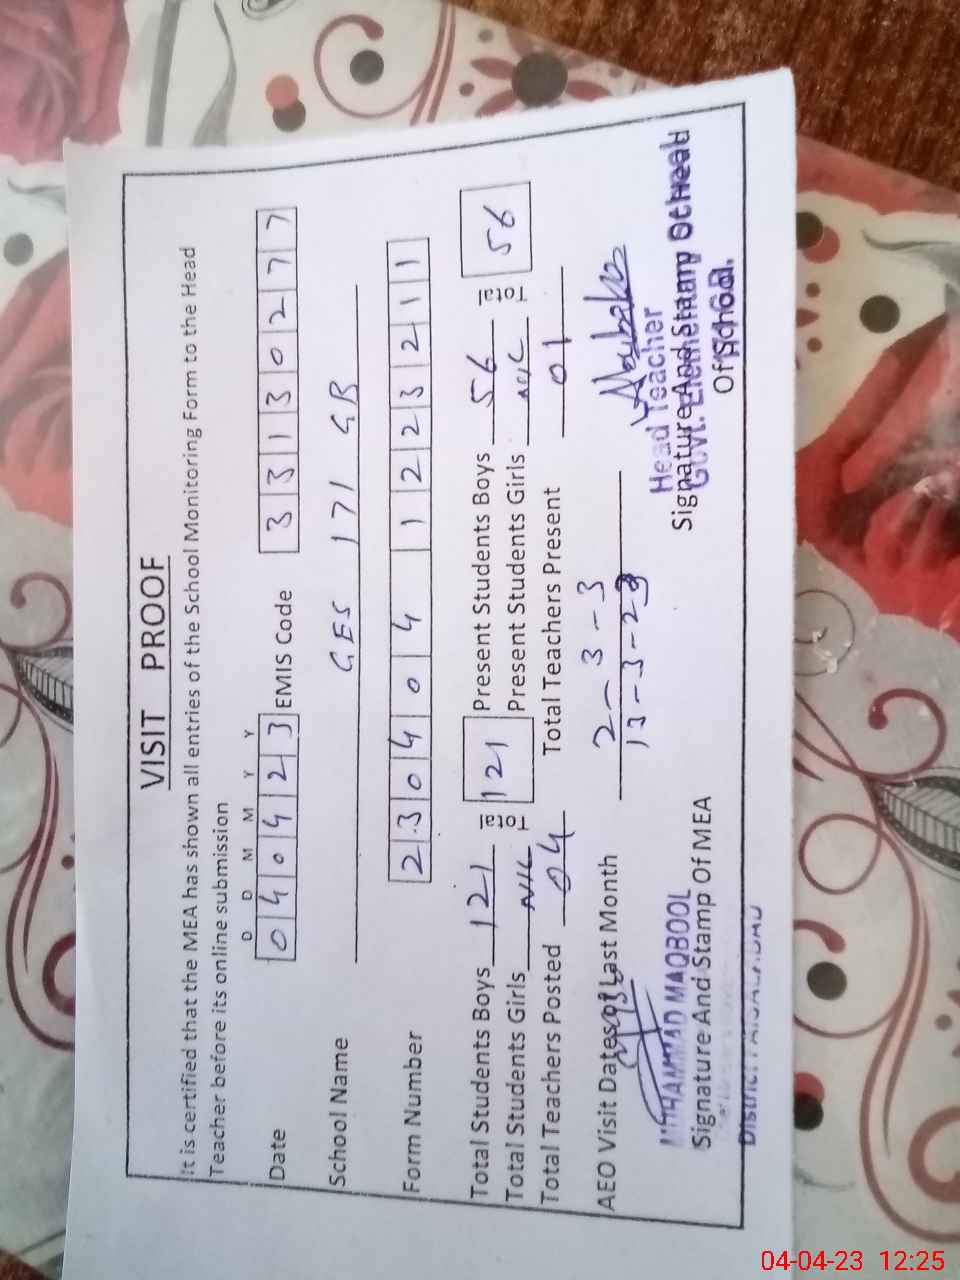 VISIT PROOF
It is certified that the MEA has shown all entries of the School Monitoring Form to the Head
Teacher before its online submission
D D M M Y Y
Date 040423 EMIS Code 33130277
School Name GES 171 GB
Form Number 230404 1223211
Total Students Boys 121 Total 121 Present Students Boys 56 Total 56
Total Students Girls NIL Present Students Girls NIL
Total Teachers Posted 04 Total Teachers Present 01
AEO Visit Dates of Last Month 2-3-3
13-3-23
MUHAMMAD MAQBOOL
Signature And Stamp Of MEA
Head Teacher
Signature And Stamp Of Head
Of School
04-04-23 12:25